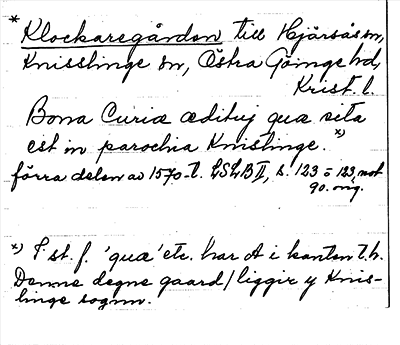 * Klockaregården till Hjärsås sn,
Knisslinge sn, Östra Göinge hd,
Krist. l.
Bona Curiæ ædituj quæ sita
est in parochia Knislinge. x)
förra delen av 1570-t. LSLB II, s. 123 = 123, not
90. orig.
x) I st. f. 'quæ' etc. har A i kanten t.h.
Denne degne gaard / liggir y Knis-
linge sognn.